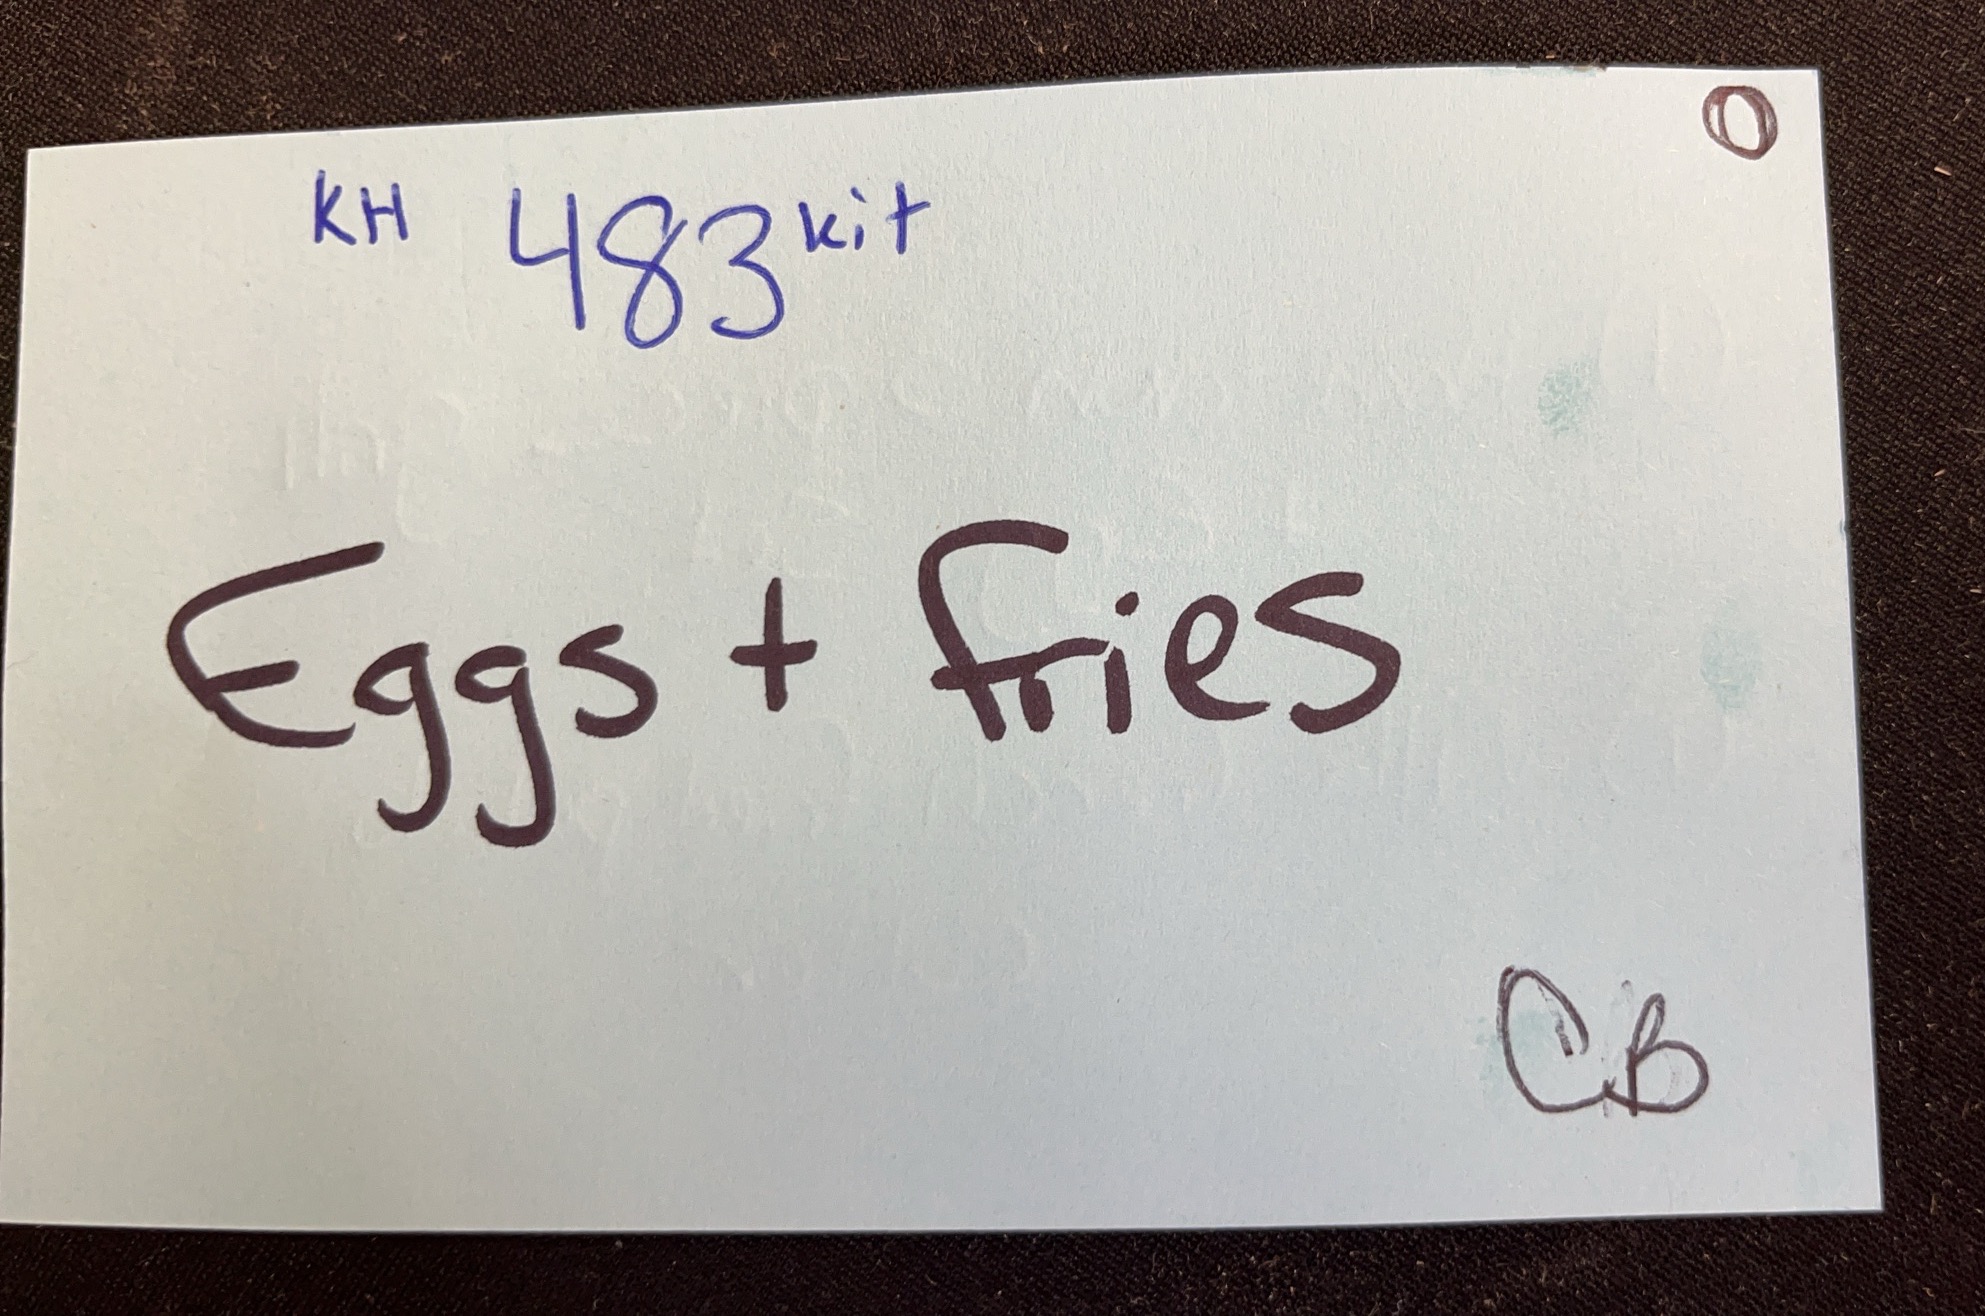 O
KH 483 kit
Eggs + fries
CB